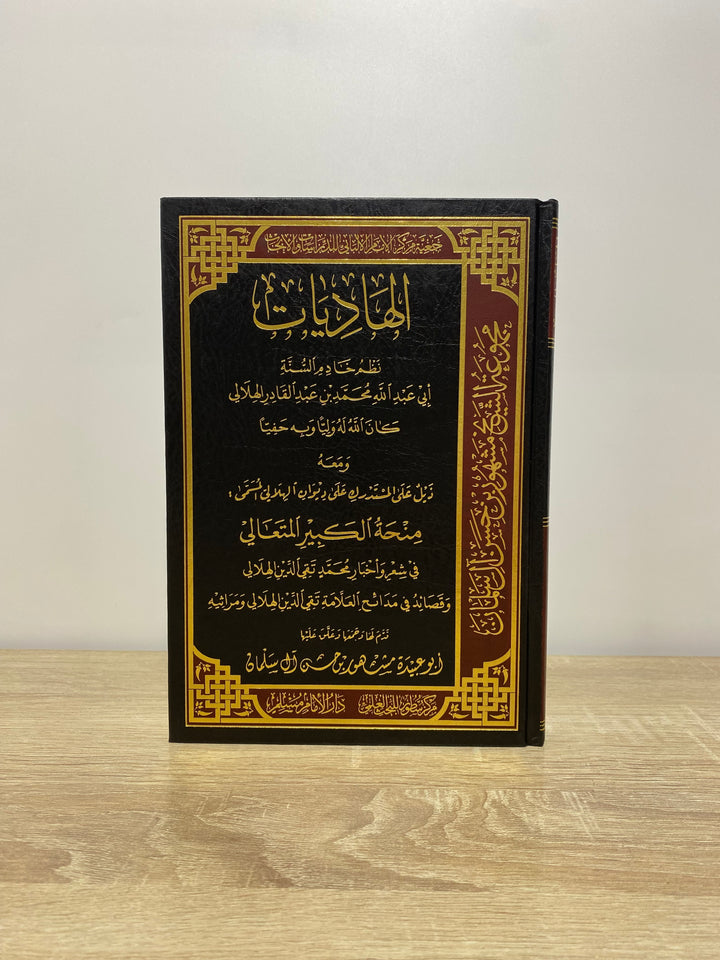 جمعية مركز الإمام الألباني للدراسات والأبحاث
الهَادِيَات
نَظْمُ خَادِمِ السُّنَّةِ
أَبِي عَبْدِ اللَّهِ مُحَمَّدِ بْنِ عَبْدِ القَادِرِ الهِلَالِي
كَانَ اللَّهُ لَهُ وَلِيًّا وَبِهِ حَفِيًّا
وَمَعَهُ
ذَيْلٌ عَلَى المُسْتَدْرَكِ عَلَى دِيوَانِ الهِلَالِي المُسَمَّى:
مِنْحَةُ الكَبِيرِ المُتَعَالِي
فِي شِعْرِ وَأَخْبَارِ مُحَمَّد تَقِي الدِّين الهِلَالِي
وَقَصَائِدُ فِي مَدَائِحِ العَلَّامَةِ تَقِي الدِّينِ الهِلَالِي وَمَرَاثِيهِ
قَدَّمَ لَهَا وَجَمَعَهَا وَعَلَّقَ عَلَيْهَا
أبو عبيدة مشهور بن حسن آل سلمان
دار الإمام مسلم
مجموعة الشيخ مشهور بن حسن آل سلمان